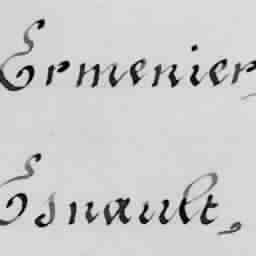 Ermenier
Esnault,